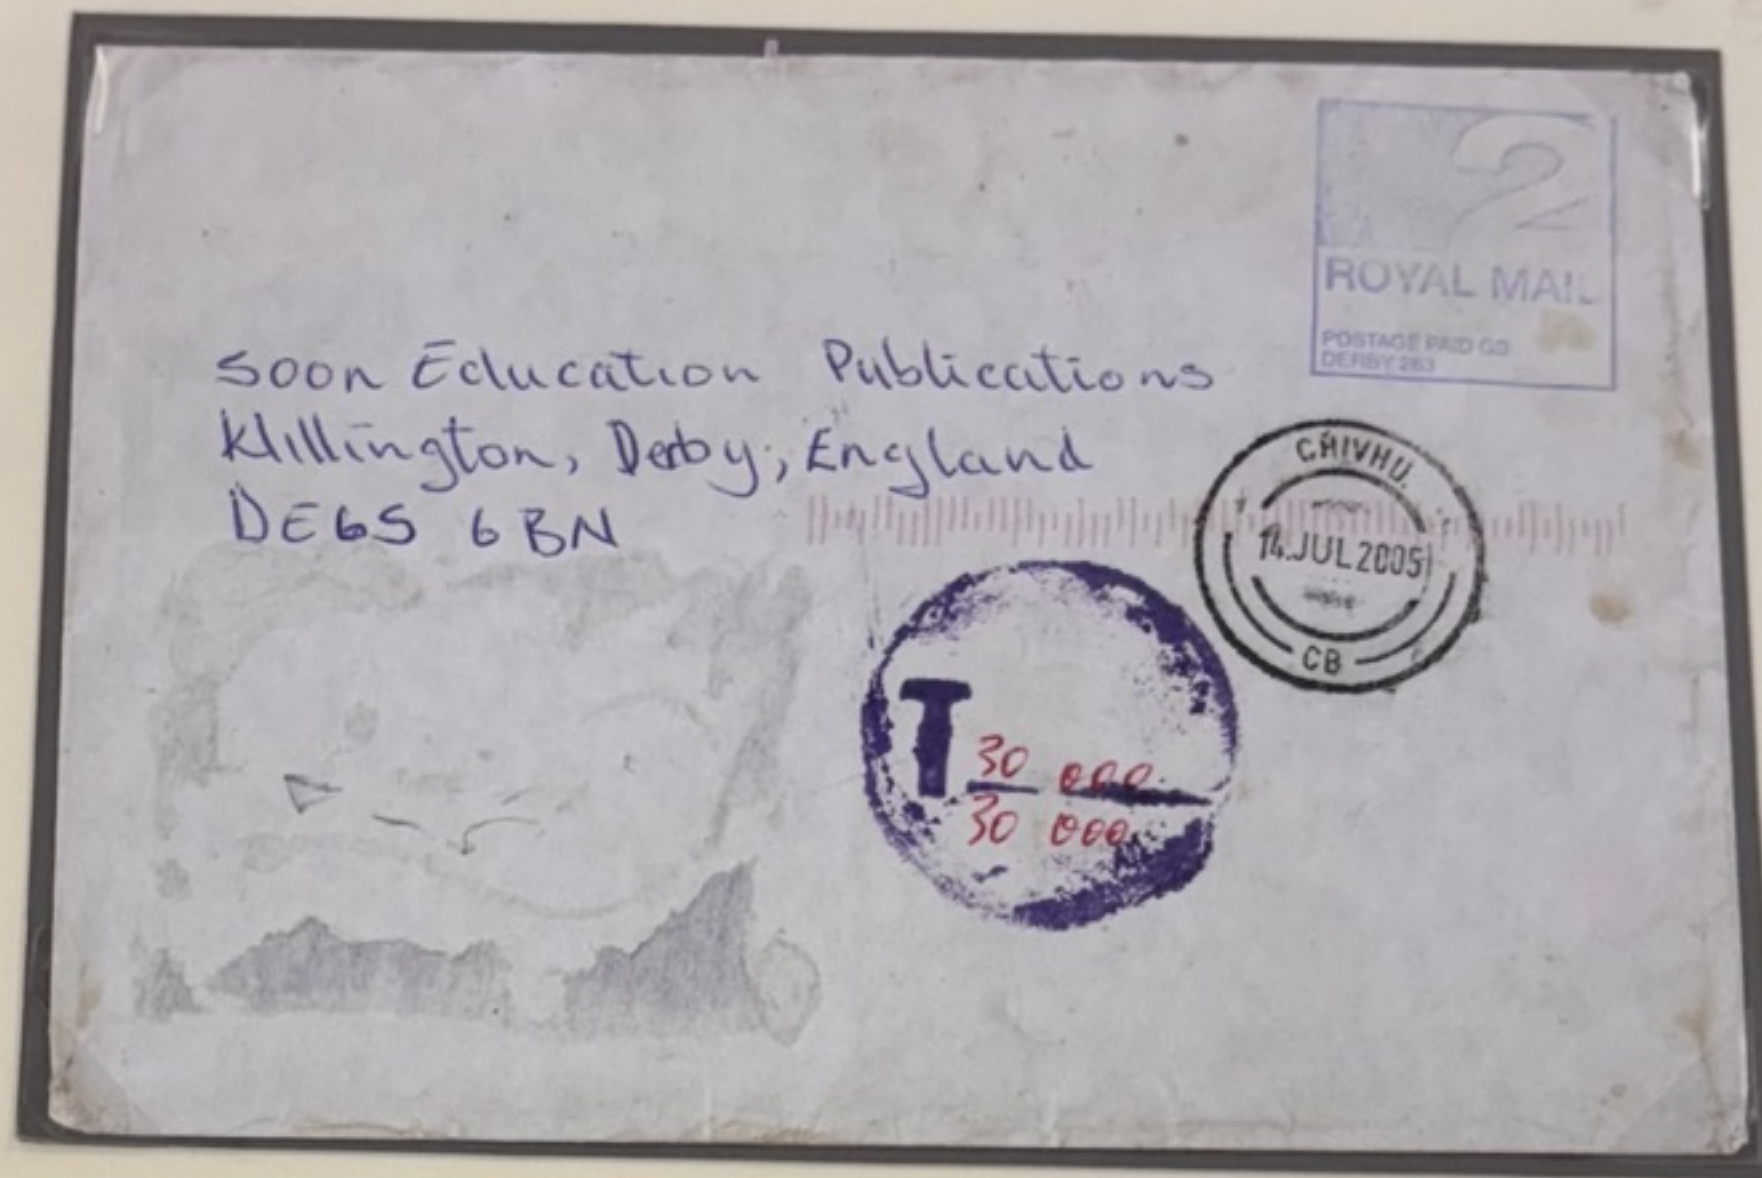 2
ROYAL MAIL
POSTAGE PAID GB
DERBY 283
Soon Education Publications
Willington, Derby, England
DE65 6BN
CHIVHU.
14.JUL2005
CB
T
30 000
30 000